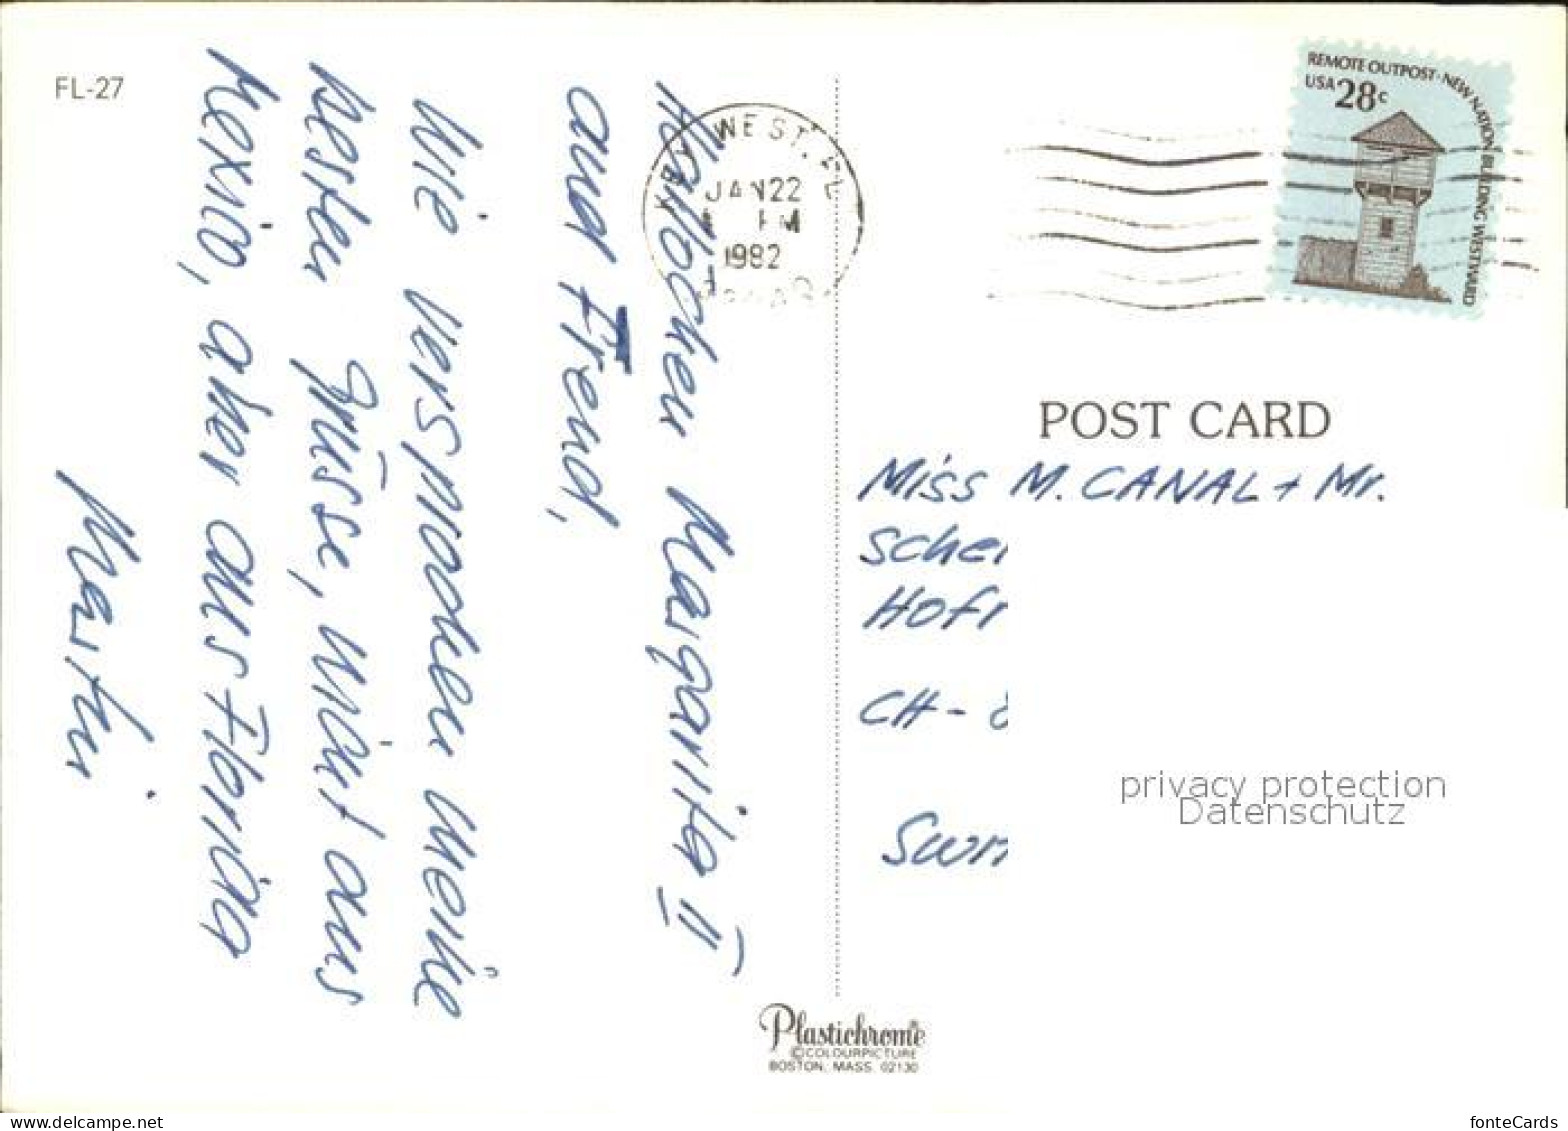 FL-27
Hallöchen Margarita II
und Freund,
Wie versprochen meine
besten Grüsse, nicht aus
Mexico, aber aus Florida
Martin
KEY WEST, FL
JAN 22
PM
1982
REMOTE OUTPOST · NEW NATION BUILDING WESTWARD
USA 28c
POST CARD
Miss M. CANAL + Mr.
CH-
privacy protection
Datenschutz
Plastichrome®
©COLOURPICTURE
BOSTON, MASS. 02130
www.delcampe.net
fonteCards